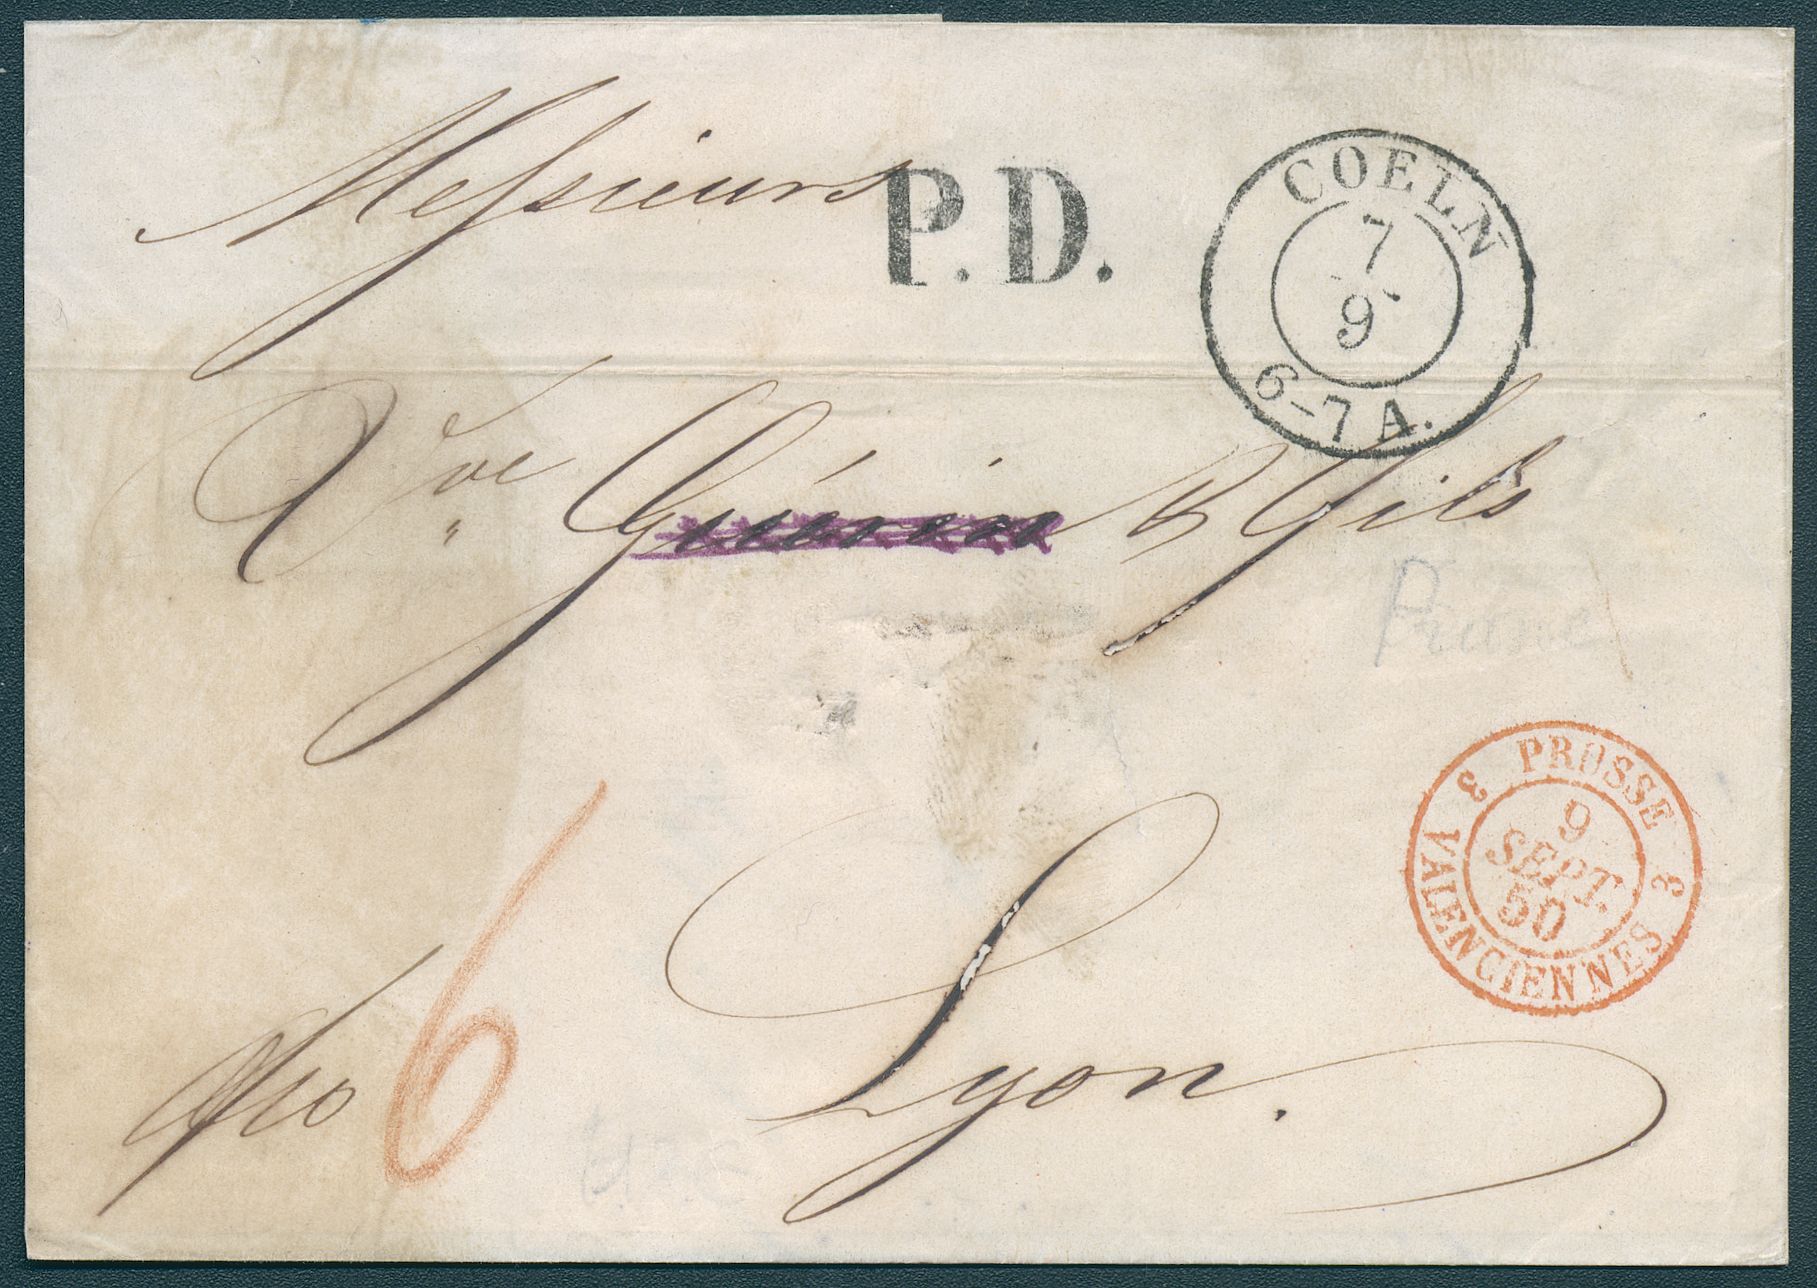 Messieurs
P.D.
COELN
7
9
6-7 A.
Vve Guérin & Fils
Franc
3 PROSSE 3
9
SEPT.
50
VALENCIENNES
fro 6
Lyon.